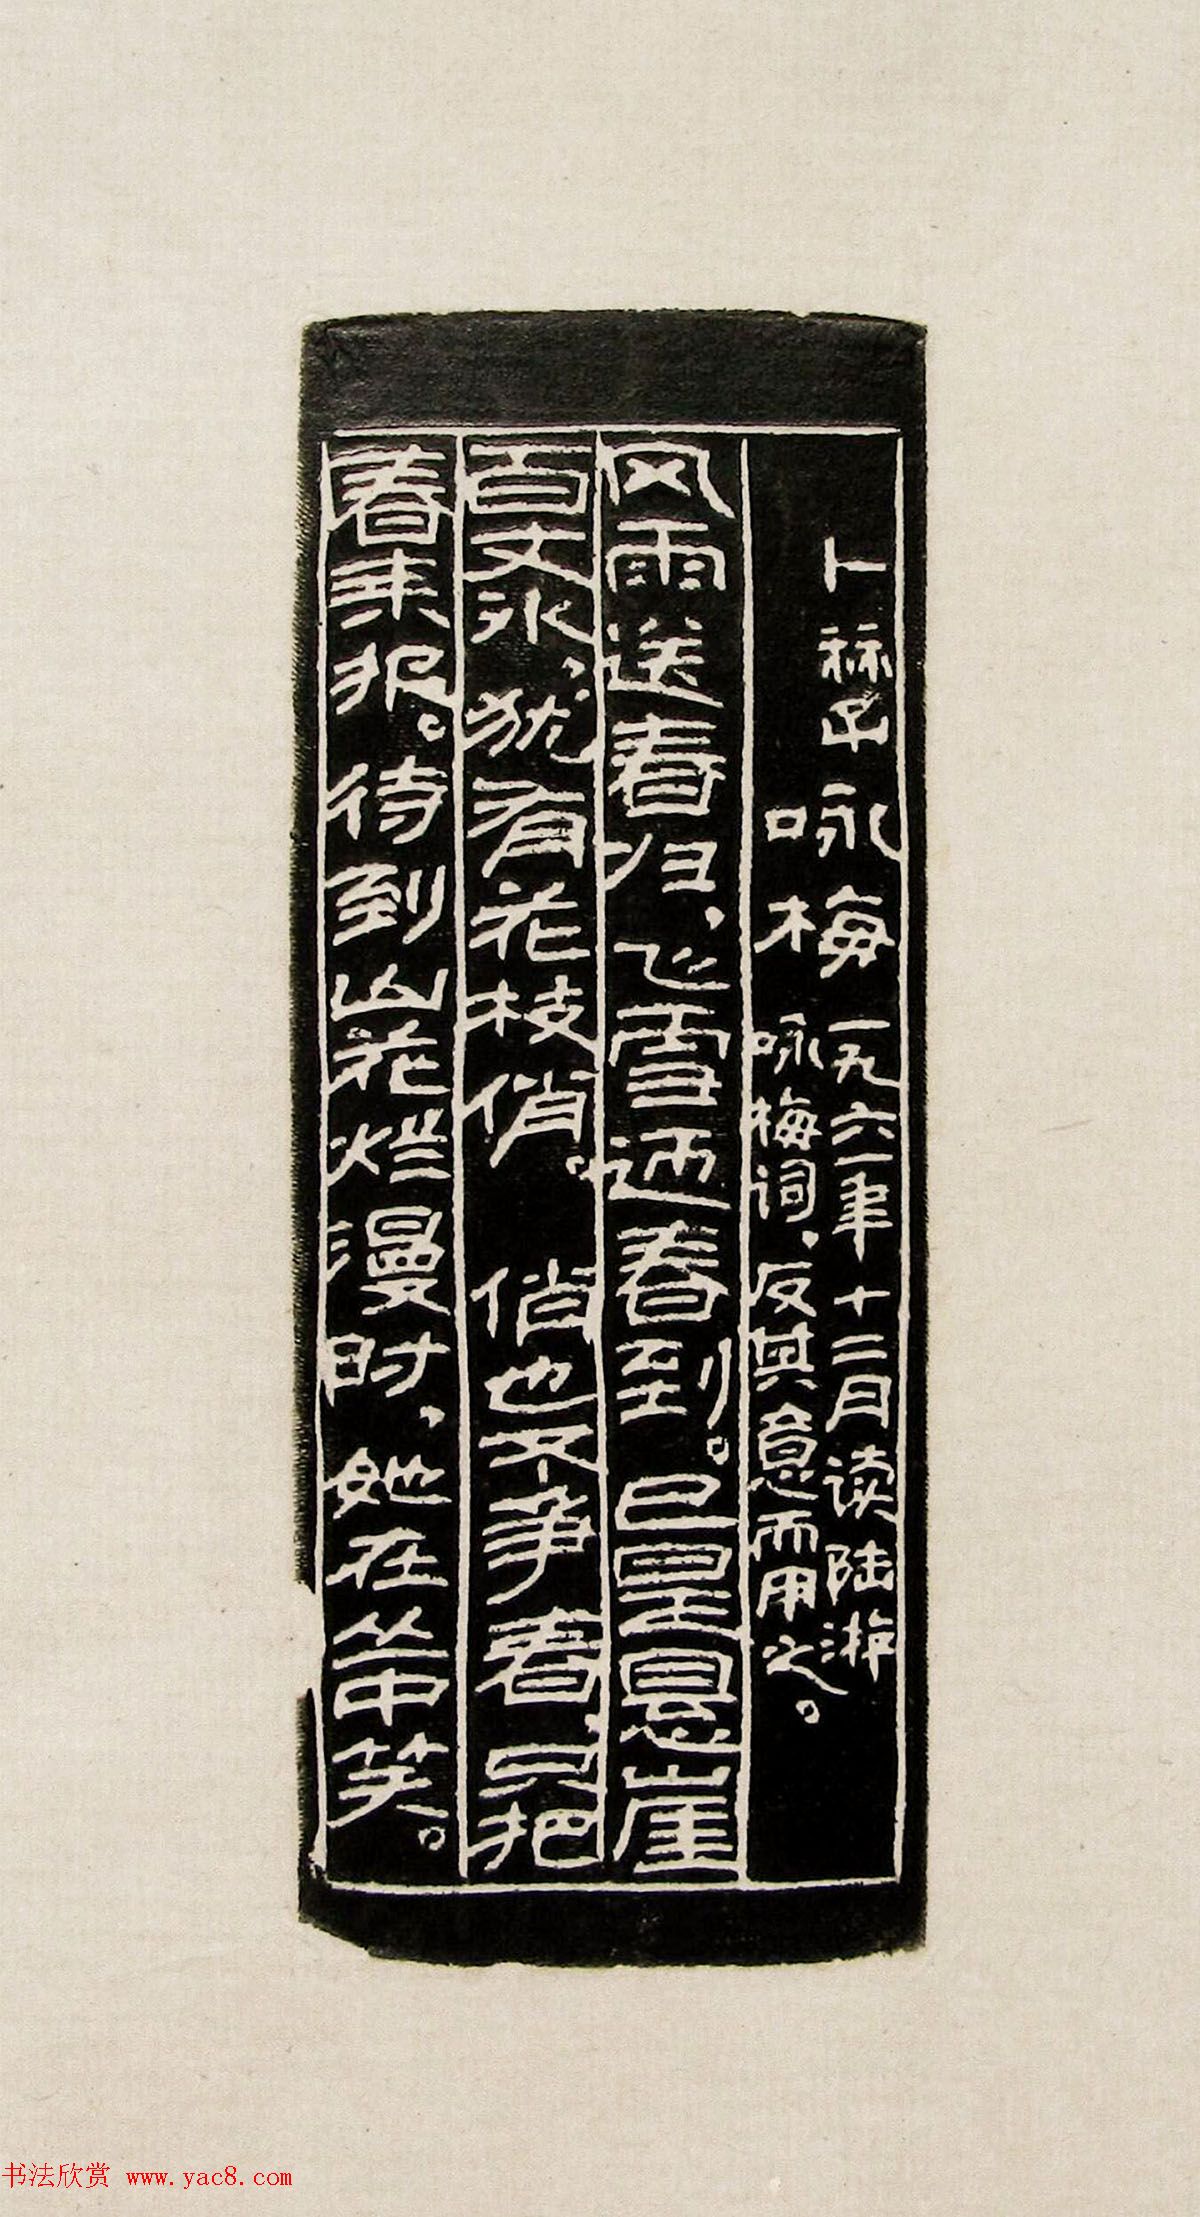 卜祘子 咏梅 一九六一年十二月读陆游
咏梅词，反其意而用之。
风雨送春归，飞雪迎春到。已是悬崖
百丈冰，犹有花枝俏。 俏也不争春，只把
春来报。待到山花烂漫时，她在丛中笑。
书法欣赏 www.yac8.com